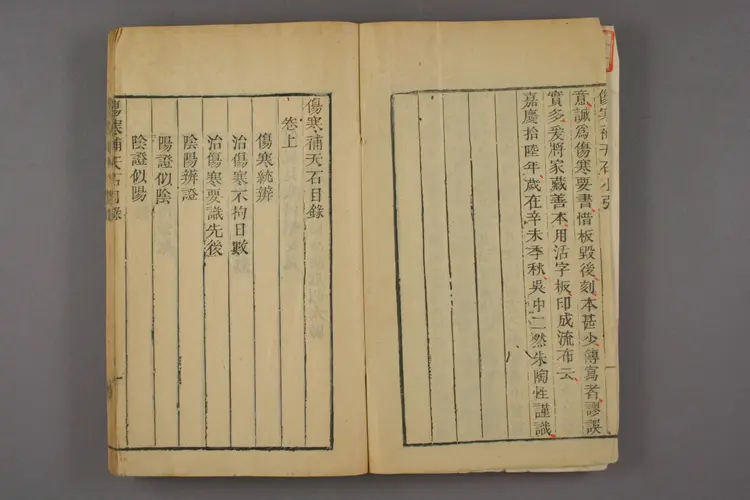 傷寒補天石小引
意誠爲傷寒要書惜板毀後刻本甚少傳寫者謬誤
實多爰將家藏善本用活字板印成流布云
嘉慶拾陸年歲在辛未季秋吳中二然朱陶性謹識
傷寒補天石目錄
卷上
傷寒統辨
治傷寒不拘日數
治傷寒要識先後
陰陽辨證
陽證似陰
陰證似陽
傷寒補天石目錄